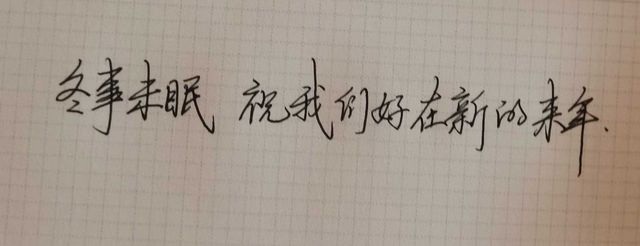 冬事未眠 祝我们好在新的来年.